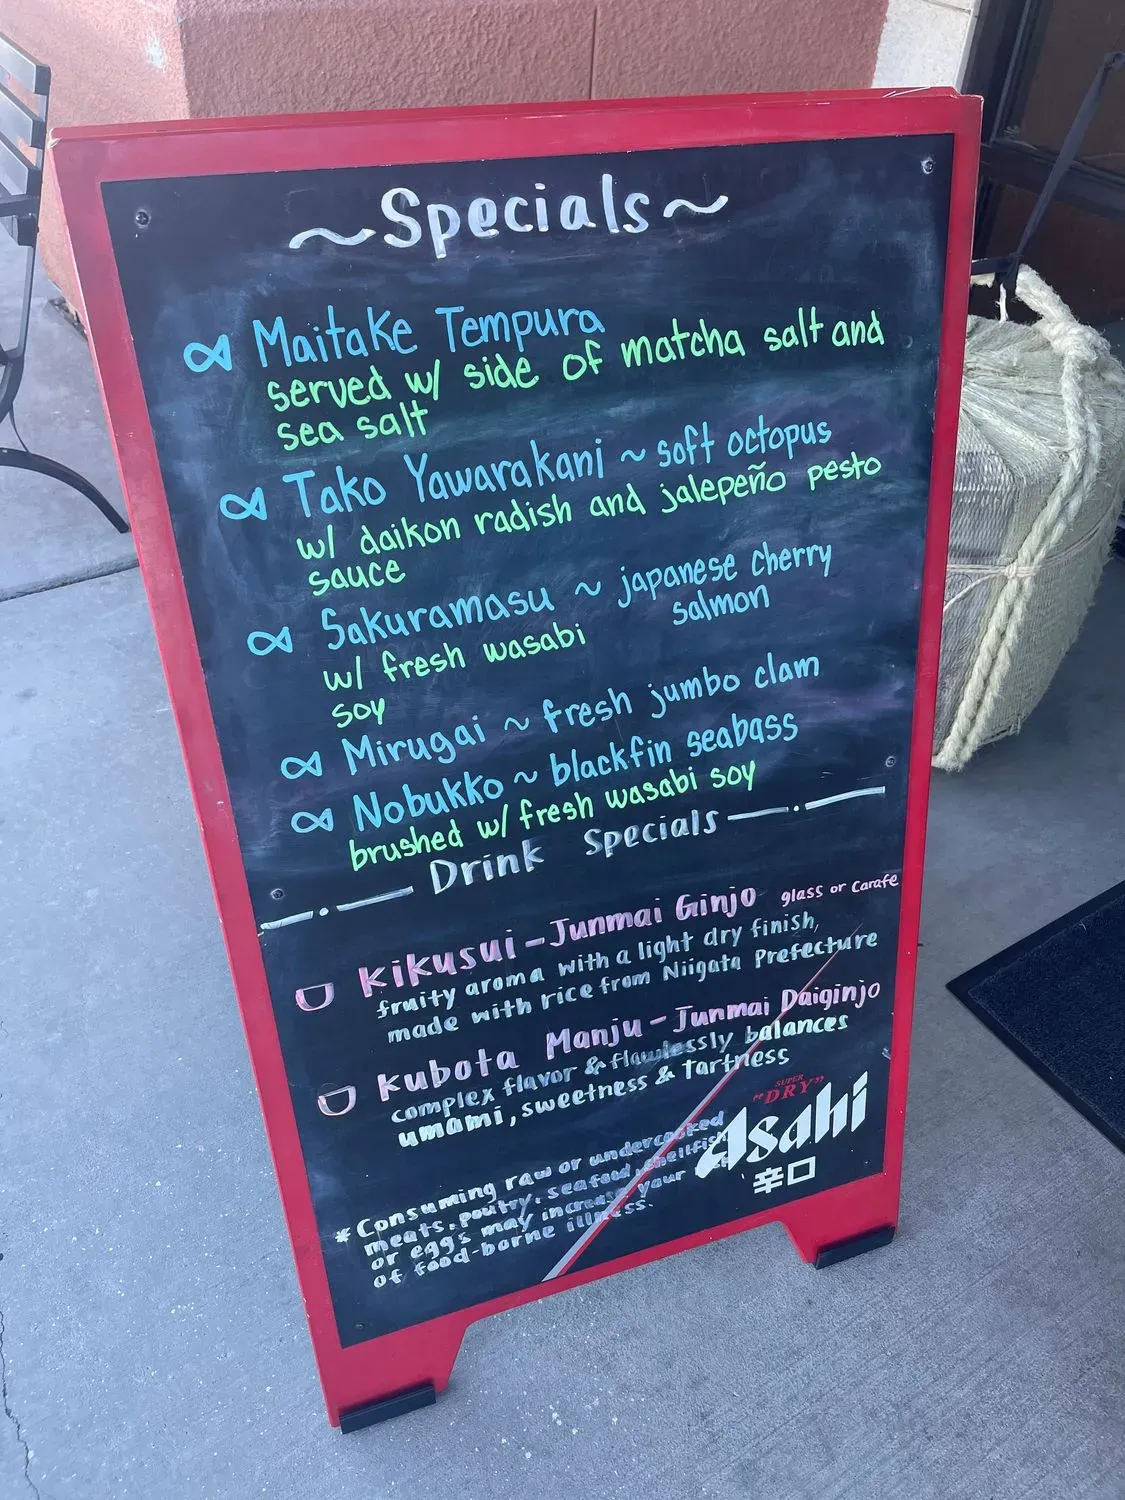 ~Specials~
Maitake Tempura
served w/ side of matcha salt and
sea salt
Tako Yawarakani ~ soft octopus
w/ daikon radish and jalepeño pesto
sauce
Sakuramasu ~ japanese cherry
salmon
w/ fresh wasabi
soy
Mirugai ~ fresh jumbo clam
Nobukko ~ blackfin seabass
brushed w/ fresh wasabi soy
Drink Specials
Kikusui - Junmai Ginjo glass or carafe
fruity aroma with a light dry finish,
made with rice from Niigata Prefecture
Kubota Manju - Junmai Daiginjo
complex flavor & flawlessly balances
umami, sweetness & tartness
SUPER
"DRY"
Asahi
辛口
*Consuming raw or undercooked
meats, poultry, seafood, shellfish
or eggs may increase your
of food-borne illness.